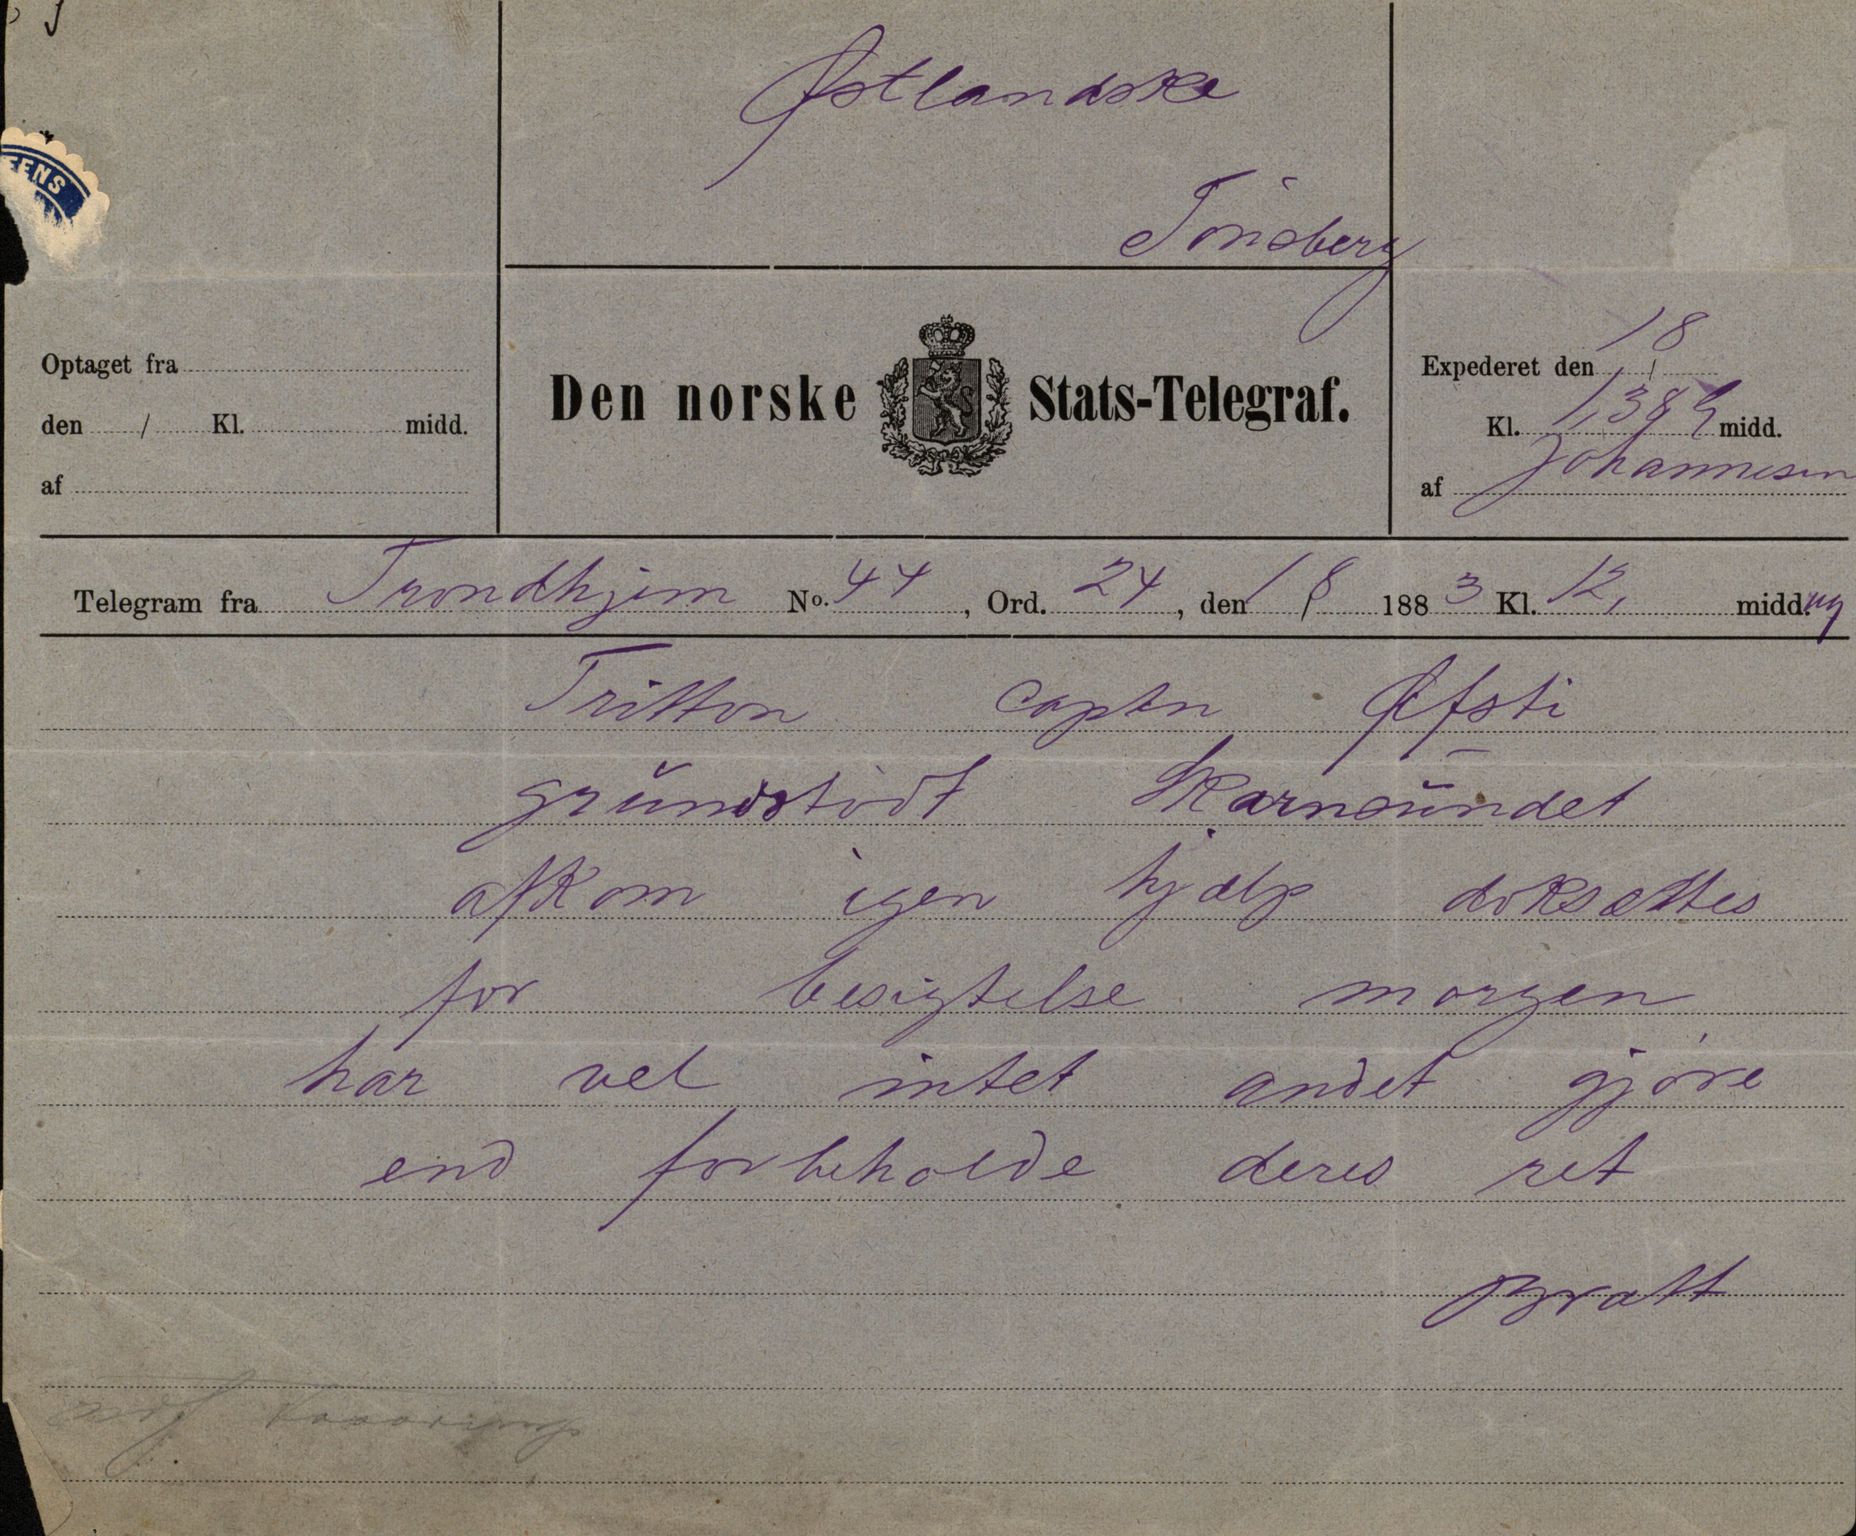 Østlandske
Tönsberg
EENS
Optaget fra
den / Kl. midd.
af
Den norske Stats-Telegraf.
Expederet den 1/8
Kl. 1,38 midd.
af Johannesen
Telegram fra Trondhjem No. 44, Ord. 24, den 1/8 1883 Kl. 12, midd.
Tritton captn Øfsti
grŭndstödt Skarnsūndet
afkom igen hjælp doksættes
for besigtelse morgen
har vel intet andet gjöre
end forbeholde deres ret
Bratt